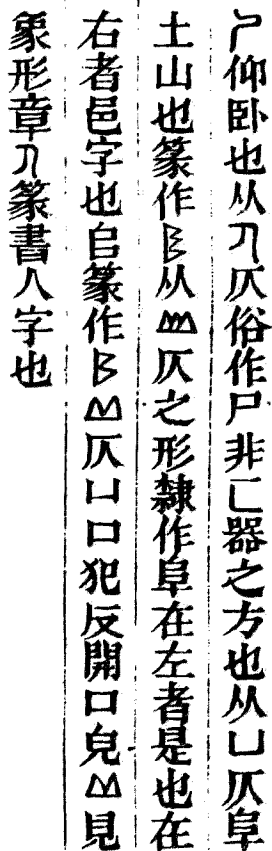 𠂆仰卧也从𠄎仄俗作尸非匚器之方也从凵仄阜
土山也篆作𨸏从𡴭仄之形隸作阜在左者是也在
右者邑字也㠯篆作阝仄凵口犯反開口皃見
象形章𠘧篆書人字也